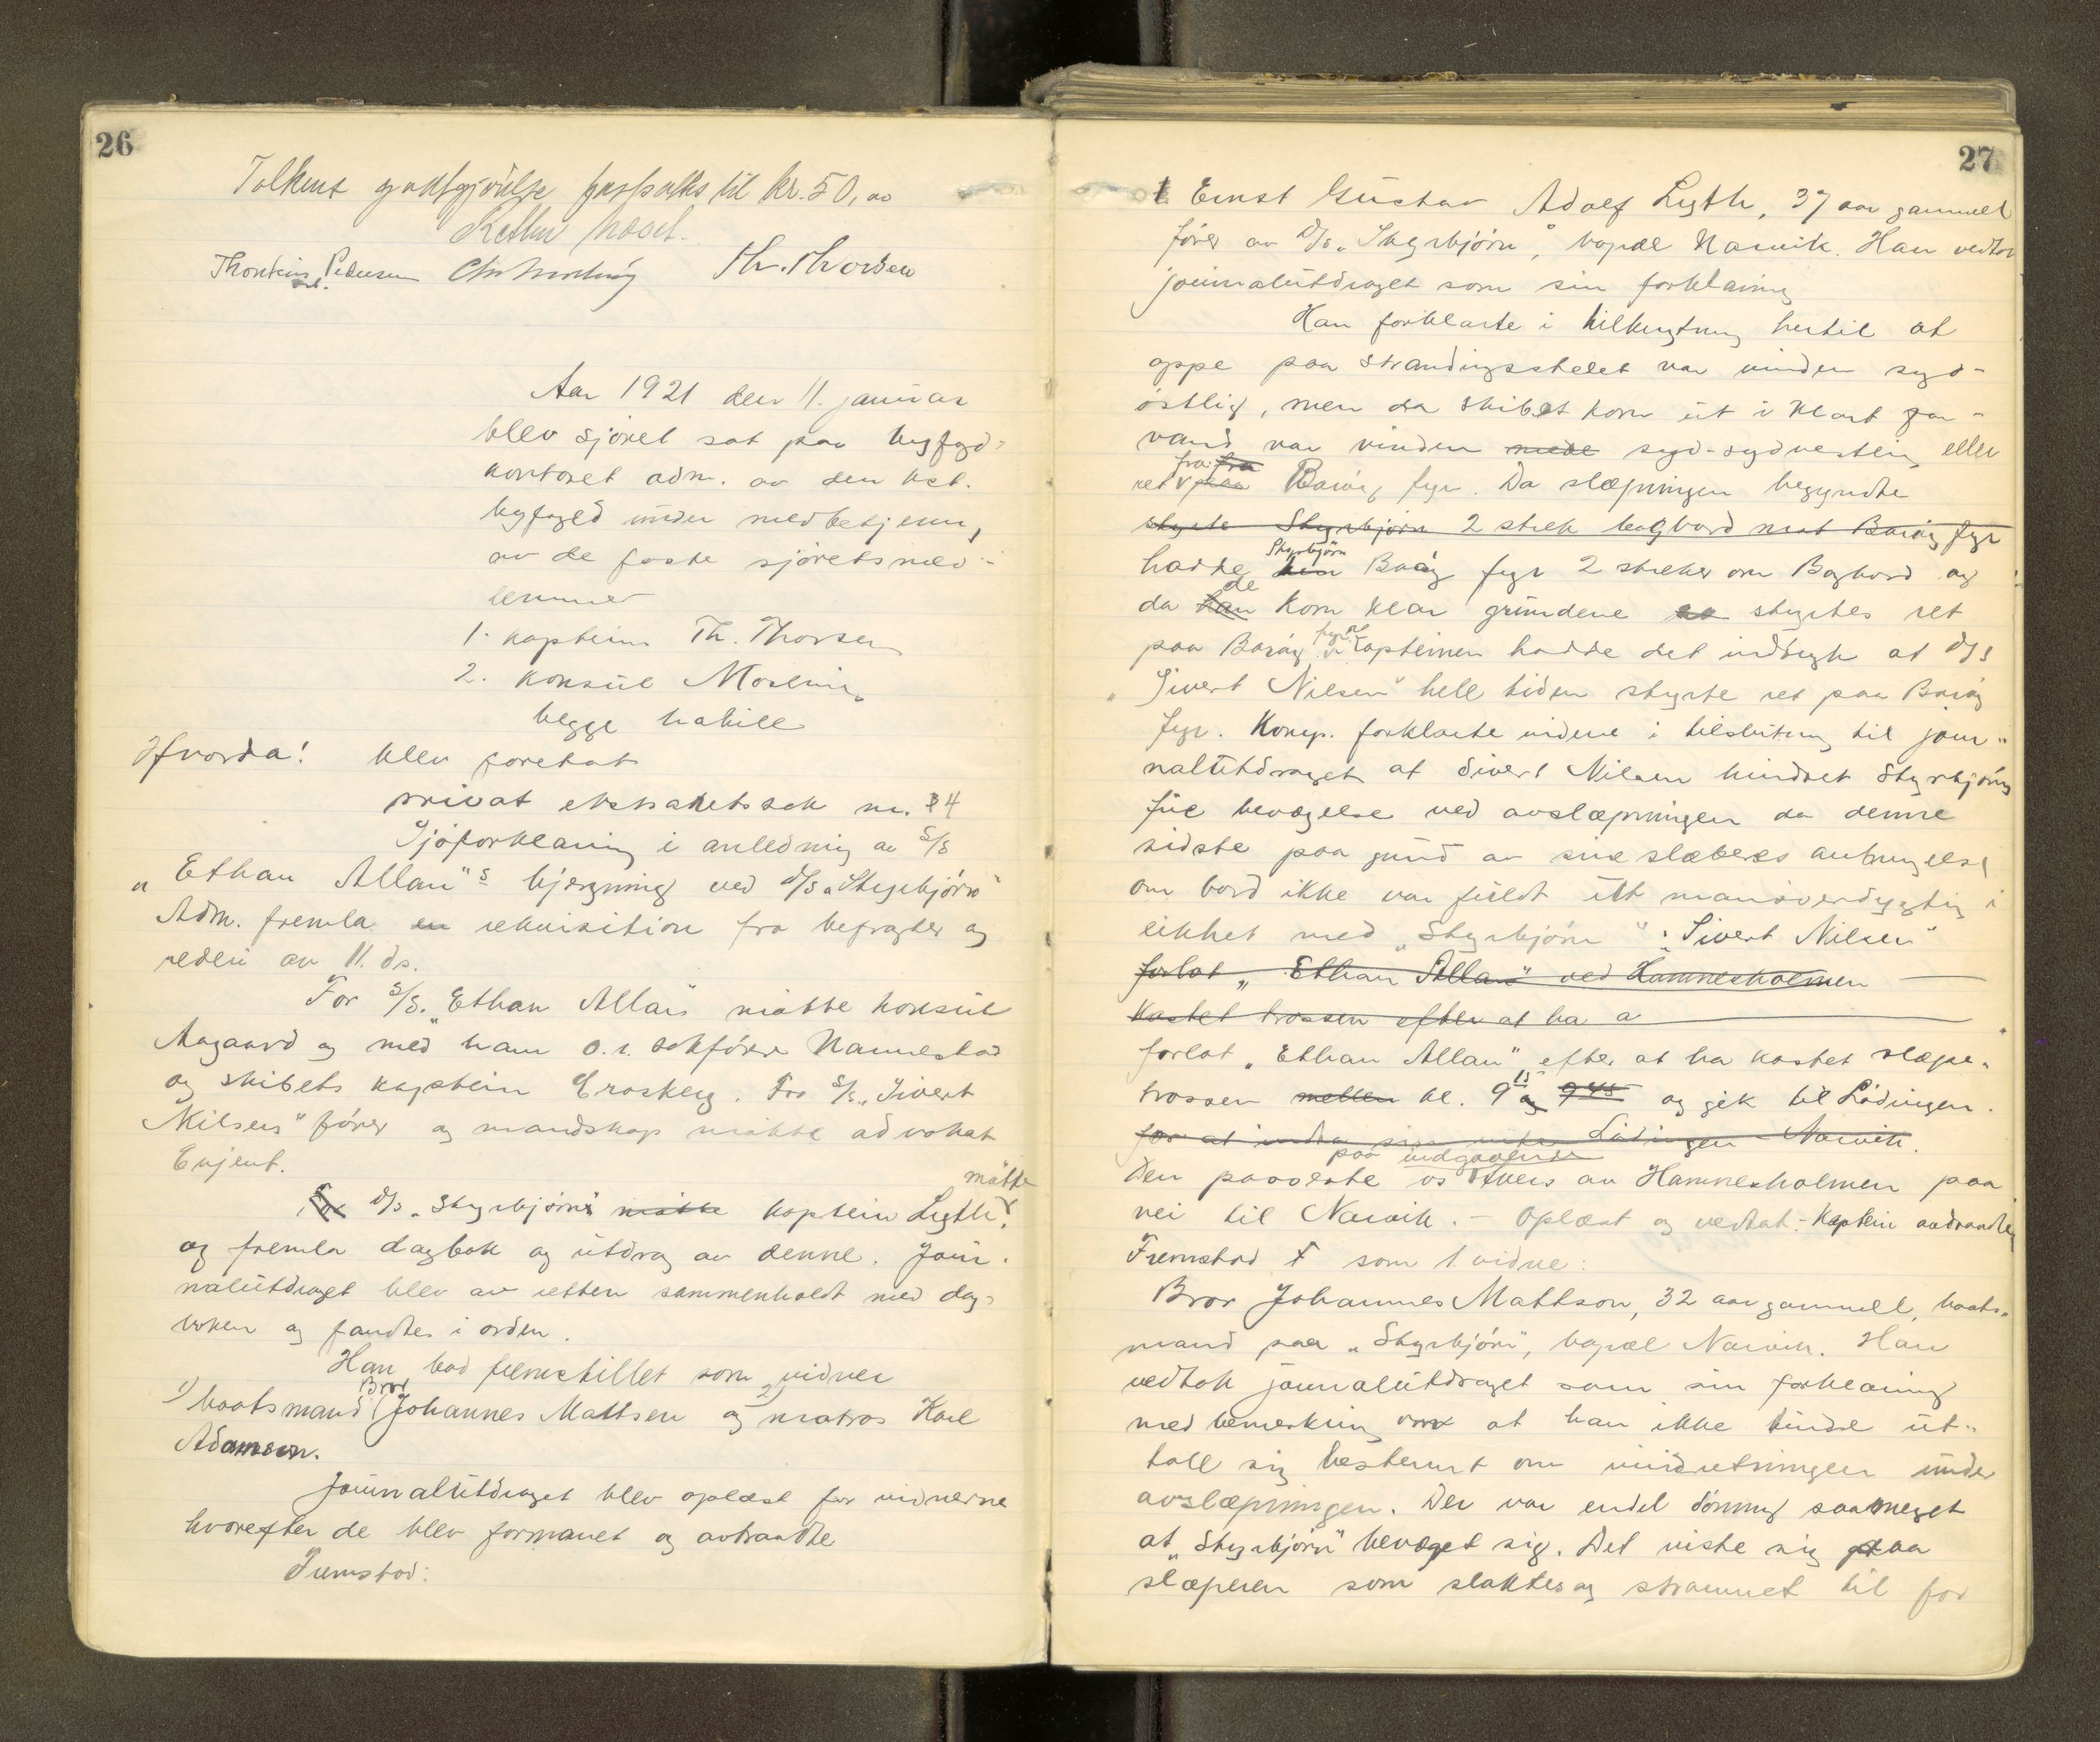 26
Tolkens godtgjörelse fastsattes til kr. 50,00
Retten hævet.
Thorstein Pedersen Th. Thorsen
Aar 1921 den 11. januar
blev sjöret sat paa byfogd-
kontoret adm. av den kst.
byfogd under medbetjening
av de faste sjöretsmed-
lemmer
1. kaptein Th. Thorsen
2. konsul Mosling
begge habile
Hvorda! blev foretat
privat ekstraretssak nr. 4
Sjöforklaring i anledning av S/S
"Ethan Allan"s bjergning ved D/S "Styrbjörn"
Adm. fremla en rekvisition fra befragter og
rederi av 11. ds.
For S/S. "Ethan Allan" mötte konsul
Aagaard og med ham o.r. sakförer Nannestad
og skibets kaptein Eroskey. For S/S. "Sivert
Nilsen" förer og mandskap mötte advokat
Evjent.
For D/S "Styrbjörn" mötte kaptein Lyth mötte
og fremla dagbok og utdrag av denne. Jour-
nalutdraget blev av retten sammenholdt med dag-
boken og fandtes i orden.
Han bad fremstillet som vidner
1) baatsmand Bror Johannes Mattsen og 2) matros Karl
Adamsen.
Journalutdraget blev oplæst for vidnerne
hvorefter de blev formanet og avtraadte
Fremstod:
27
1 Ernst Gustav Adolf Lyth, 37 aar gammel
förer av D/S "Styrbjörn", bopæl Narvik. Han vedtok
journalutdraget som sin forklaring
Han forklarte i tilknytning hertil at
oppe paa strandingsstedet var vinden syd-
östlig, men da skibet kom ut i klart far-
vand var vinden mede syd-sydvestlig, eller
ret fra fra paa Baröy fyr. Da slæpningen begyndte
styrte Styrbjörn 2 strek bagbord mot Baröy fyr
hadde Styrbjörn den Baröy fyr 2 streker om Bagbord og
da de han kom klar grundene styrtes ret
paa Baröy fyr. Kapteinen hadde det indtryk at D/S
"Sivert Nilsen" hele tiden styrte ret paa Baröy
fyr. Komp. forklarte videre i tilslutning til jour-
nalutdraget at Sivert Nilsen hindret Styrbjörns
frie bevægelse ved avslæpningen da denne
sidste paa grund av sine slæberes anbringelse
om bord ikke var fuldt ut manöverdygtig i
likhet med "Styrbjörn". "Sivert Nilsen"
forlot "Ethan Allan" ved Hamnesholmen
kastet trossen efter at ha a
forlot "Ethan Allan" efter at ha kastet slæpe-
trossen mellem kl. 9 15 og 9 45 og gik til Lödingen.
for at Lödingen - Narvik.
Den passerte os paa indgaaende tvers av Hamnesholmen paa
vei til Narvik. - Oplæst og vedtat. - Kaptein avtraadte
Fremstod som 1. vidne:
Bror Johannes Mattson, 32 aar gammel, baats-
mand paa "Styrbjörn", bopæl Narvik. Han
vedtok journalutdraget som sin forklaring
med bemerkning at han ikke kunde ut-
tale sig bestemt om vindretningen under
avslæpningen. Der var endel dönning saa meget
at "Styrbjörn" bevæget sig. Det viste sig paa
slæperen som slaktes og strammet til for